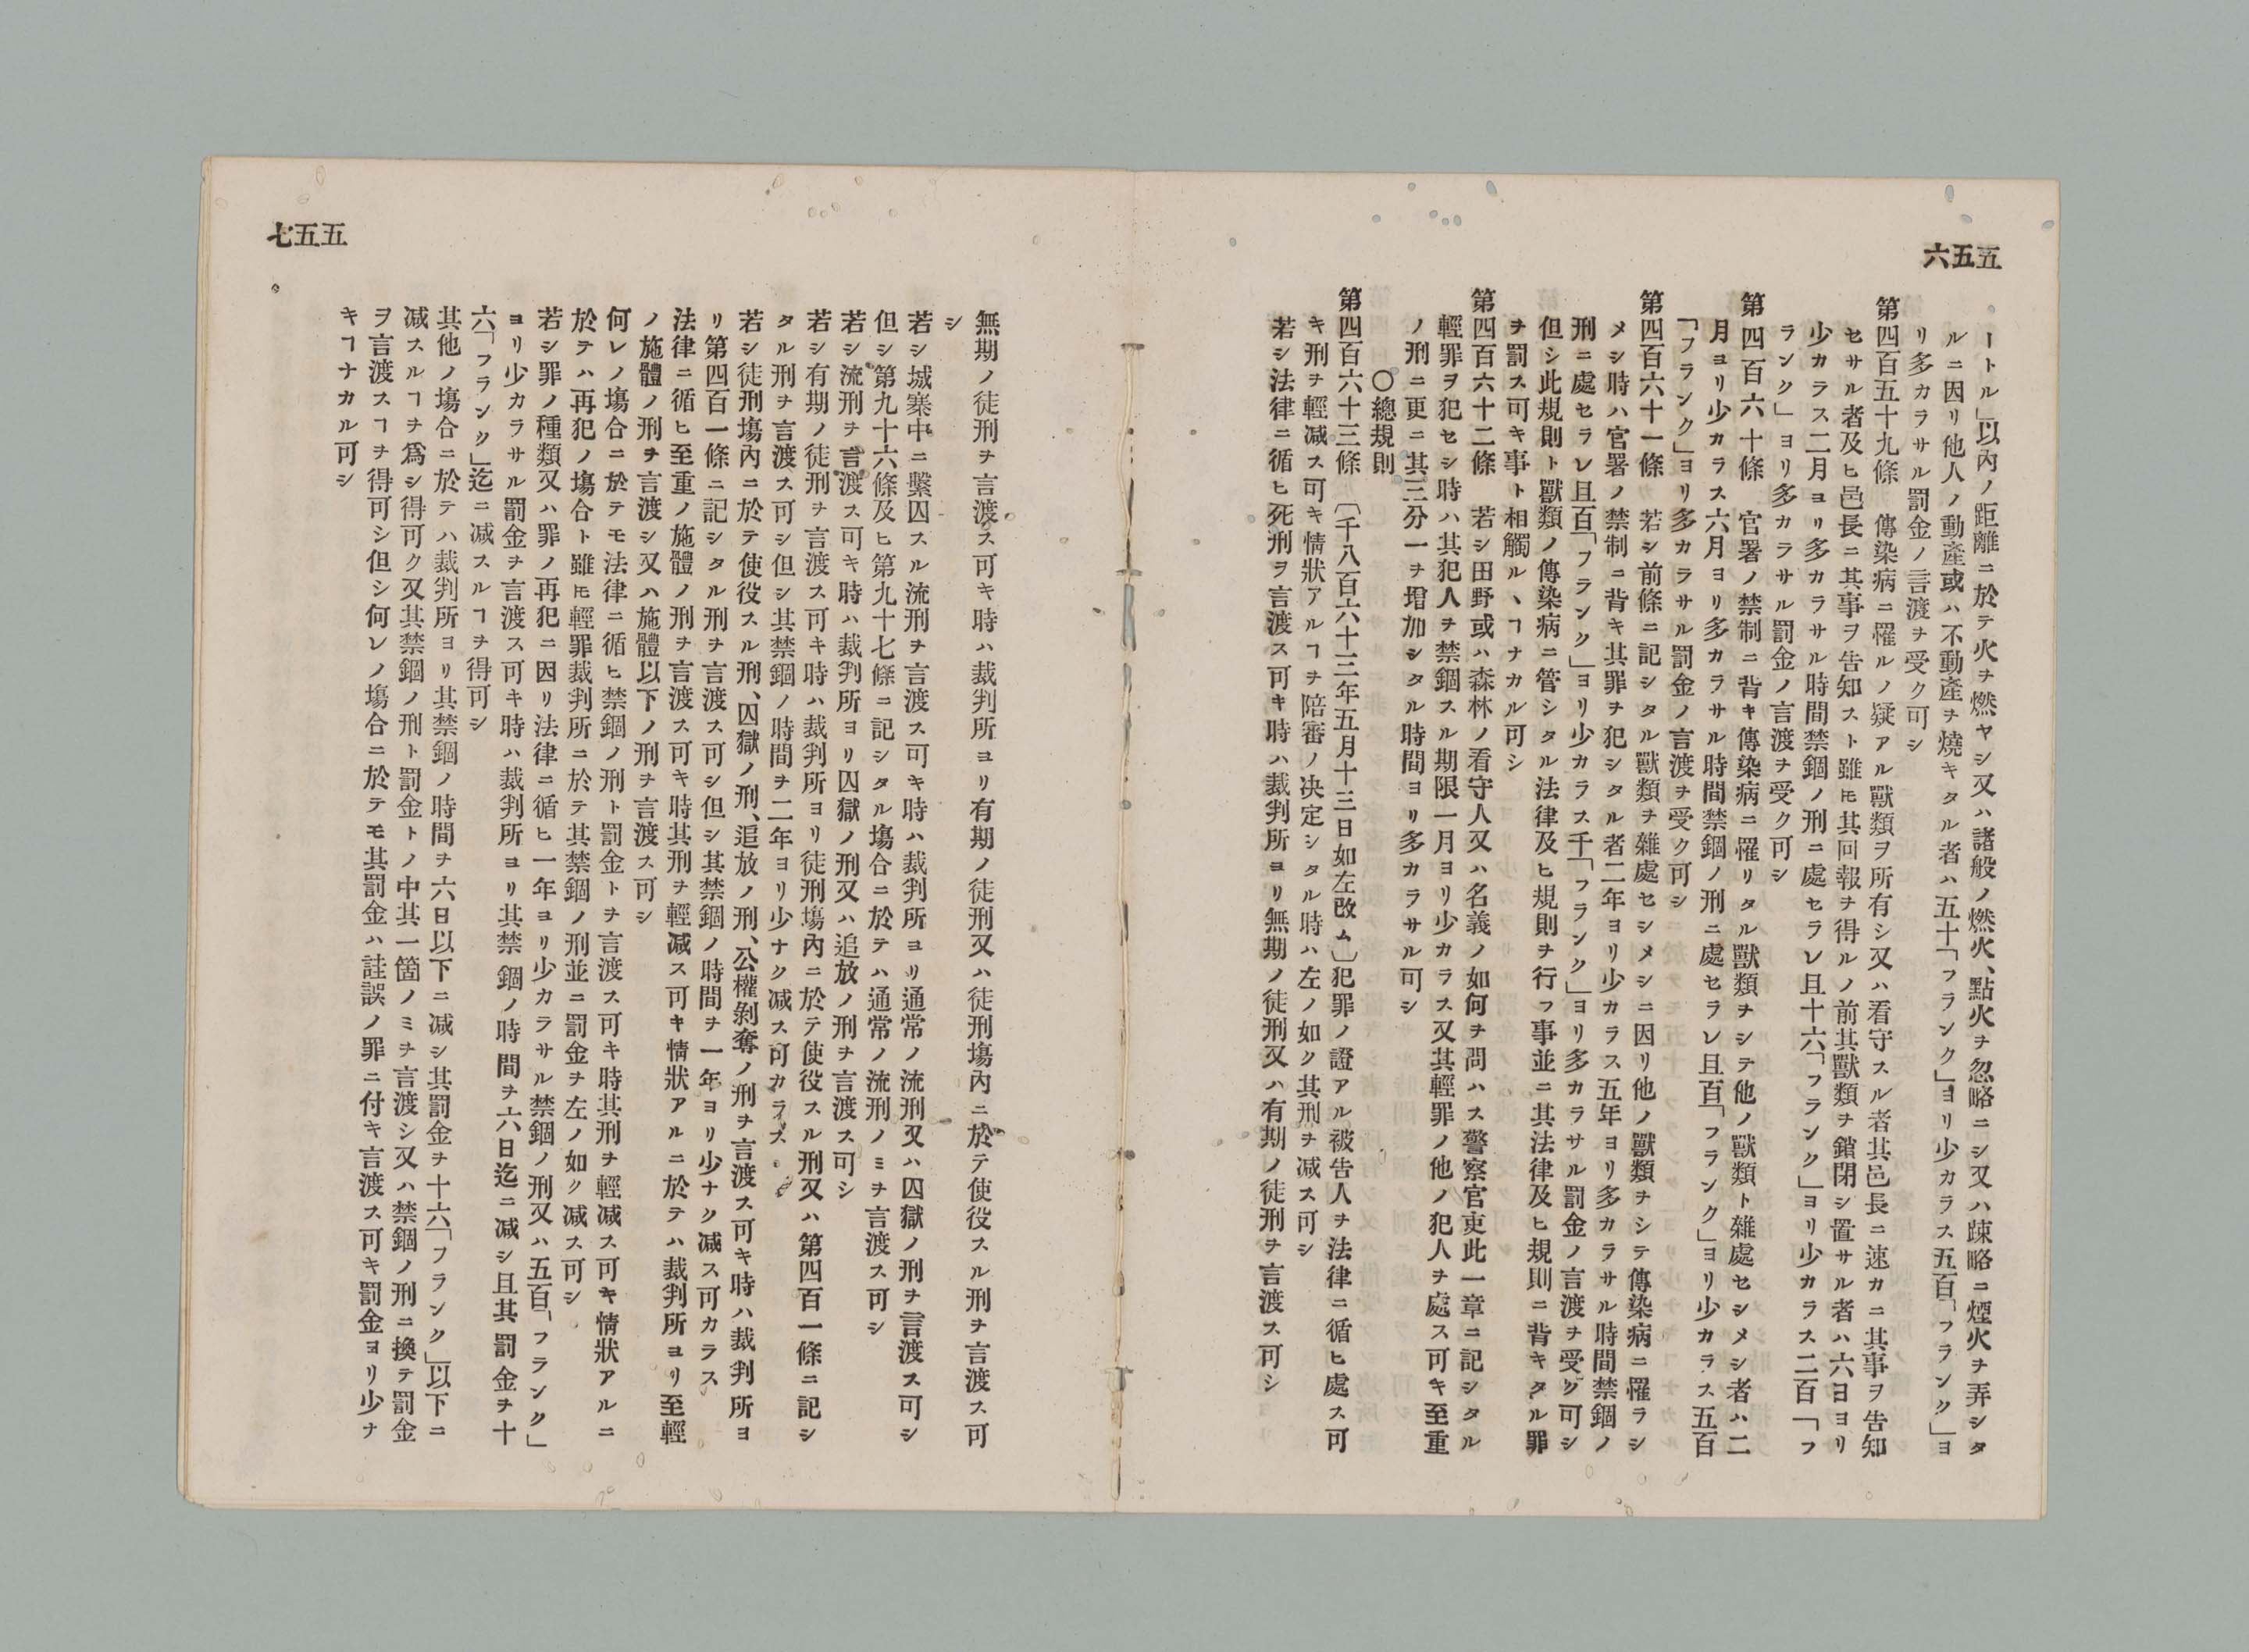 六五五
ートル」以內ノ距離ニ於テ火ヲ燃ヤシ又ハ諸般ノ燃火、點火ヲ忽略ニシ又ハ疎略ニ煙火ヲ弄シタ
ルニ因リ他人ノ動產或ハ不動產ヲ燒キタル者ハ五十「フランク」ヨリ少カラス五百「フランク」ヨ
リ多カラサル罰金ノ言渡ヲ受ク可シ
第四百五十九條　傳染病ニ罹ルノ疑アル獸類ヲ所有シ又ハ看守スル者其邑長ニ速カニ其事ヲ告知
セサル者及ヒ邑長ニ其事ヲ告知スト雖モ其回報ヲ得ルノ前其獸類ヲ鎖閉シ置サル者ハ六日ヨリ
少カラス二月ヨリ多カラサル時間禁錮ノ刑ニ處セラレ且十六「フランク」ヨリ少カラス二百「フ
ランク」ヨリ多カラサル罰金ノ言渡ヲ受ク可シ
第四百六十條　官署ノ禁制ニ背キ傳染病ニ罹リタル獸類ヲシテ他ノ獸類ト雜處セシメシ者ハ二
月ヨリ少カラス六月ヨリ多カラサル時間禁錮ノ刑ニ處セラレ且百「フランク」ヨリ少カラス五百
「フランク」ヨリ多カラサル罰金ノ言渡ヲ受ク可シ
第四百六十一條　若シ前條ニ記シタル獸類ヲ雜處セシメシニ因リ他ノ獸類ヲシテ傳染病ニ罹ラシ
メシ時ハ官署ノ禁制ニ背キ其罪ヲ犯シタル者二年ヨリ少カラス五年ヨリ多カラサル時間禁錮ノ
刑ニ處セラレ且百「フランク」ヨリ少カラス千「フランク」ヨリ多カラサル罰金ノ言渡ヲ受ク可シ
但シ此規則ト獸類ノ傳染病ニ管シタル法律及ヒ規則ヲ行フ事並ニ其法律及ヒ規則ニ背キタル罪
ヲ罰ス可キ事ト相觸ルヽヿナカル可シ
第四百六十二條　若シ田野或ハ森林ノ看守人又ハ名義ノ如何ヲ問ハス警察官吏此一章ニ記シタル
輕罪ヲ犯セシ時ハ其犯人ヲ禁錮スル期限一月ヨリ少カラス又其輕罪ノ他ノ犯人ヲ處ス可キ至重
ノ刑ニ更ニ其三分一ヲ增加シタル時間ヨリ多カラサル可シ
〇總規則
第四百六十三條　〔千八百六十三年五月十三日如左改ム〕犯罪ノ證アル被告人ヲ法律ニ循ヒ處ス可
キ刑ヲ輕減ス可キ情狀アルヿヲ陪審ノ决定シタル時ハ左ノ如ク其刑ヲ減ス可シ
若シ法律ニ循ヒ死刑ヲ言渡ス可キ時ハ裁判所ヨリ無期ノ徒刑又ハ有期ノ徒刑ヲ言渡ス可シ
七五五
無期ノ徒刑ヲ言渡ス可キ時ハ裁判所ヨリ有期ノ徒刑又ハ徒刑塲內ニ於テ使役スル刑ヲ言渡ス可
シ
若シ城寨中ニ繫囚スル流刑ヲ言渡ス可キ時ハ裁判所ヨリ通常ノ流刑又ハ囚獄ノ刑ヲ言渡ス可シ
但シ第九十六條及ヒ第九十七條ニ記シタル塲合ニ於テハ通常ノ流刑ノミヲ言渡ス可シ
若シ流刑ヲ言渡ス可キ時ハ裁判所ヨリ囚獄ノ刑又ハ追放ノ刑ヲ言渡ス可シ
若シ有期ノ徒刑ヲ言渡ス可キ時ハ裁判所ヨリ徒刑塲內ニ於テ使役スル刑又ハ第四百一條ニ記シ
タル刑ヲ言渡ス可シ但シ其禁錮ノ時間ヲ二年ヨリ少ナク減ス可カラス
若シ徒刑塲內ニ於テ使役スル刑、囚獄ノ刑、追放ノ刑、公權剝奪ノ刑ヲ言渡ス可キ時ハ裁判所ヨ
リ第四百一條ニ記シタル刑ヲ言渡ス可シ但シ其禁錮ノ時間ヲ一年ヨリ少ナク減ス可カラス
法律ニ循ヒ至重ノ施體ノ刑ヲ言渡ス可キ時其刑ヲ輕減ス可キ情狀アルニ於テハ裁判所ヨリ至輕
ノ施體ノ刑ヲ言渡シ又ハ施體以下ノ刑ヲ言渡ス可シ
何レノ塲合ニ於テモ法律ニ循ヒ禁錮ノ刑ト罰金トヲ言渡ス可キ時其刑ヲ輕減ス可キ情狀アルニ
於テハ再犯ノ塲合ト雖モ輕罪裁判所ニ於テ其禁錮ノ刑並ニ罰金ヲ左ノ如ク減ス可シ
若シ罪ノ種類又ハ罪ノ再犯ニ因リ法律ニ循ヒ一年ヨリ少カラサル禁錮ノ刑又ハ五百「フランク」
ヨリ少カラサル罰金ヲ言渡ス可キ時ハ裁判所ヨリ其禁錮ノ時間ヲ六日迄ニ減シ且其罰金ヲ十
六「フランク」迄ニ減スルヿヲ得可シ
其他ノ塲合ニ於テハ裁判所ヨリ其禁錮ノ時間ヲ六日以下ニ減シ其罰金ヲ十六「フランク」以下ニ
減スルヿヲ爲シ得可ク又其禁錮ノ刑ト罰金トノ中其一箇ノミヲ言渡シ又ハ禁錮ノ刑ニ換テ罰金
ヲ言渡スヿヲ得可シ但シ何レノ塲合ニ於テモ其罰金ハ詿誤ノ罪ニ付キ言渡ス可キ罰金ヨリ少ナ
キヿナカル可シ